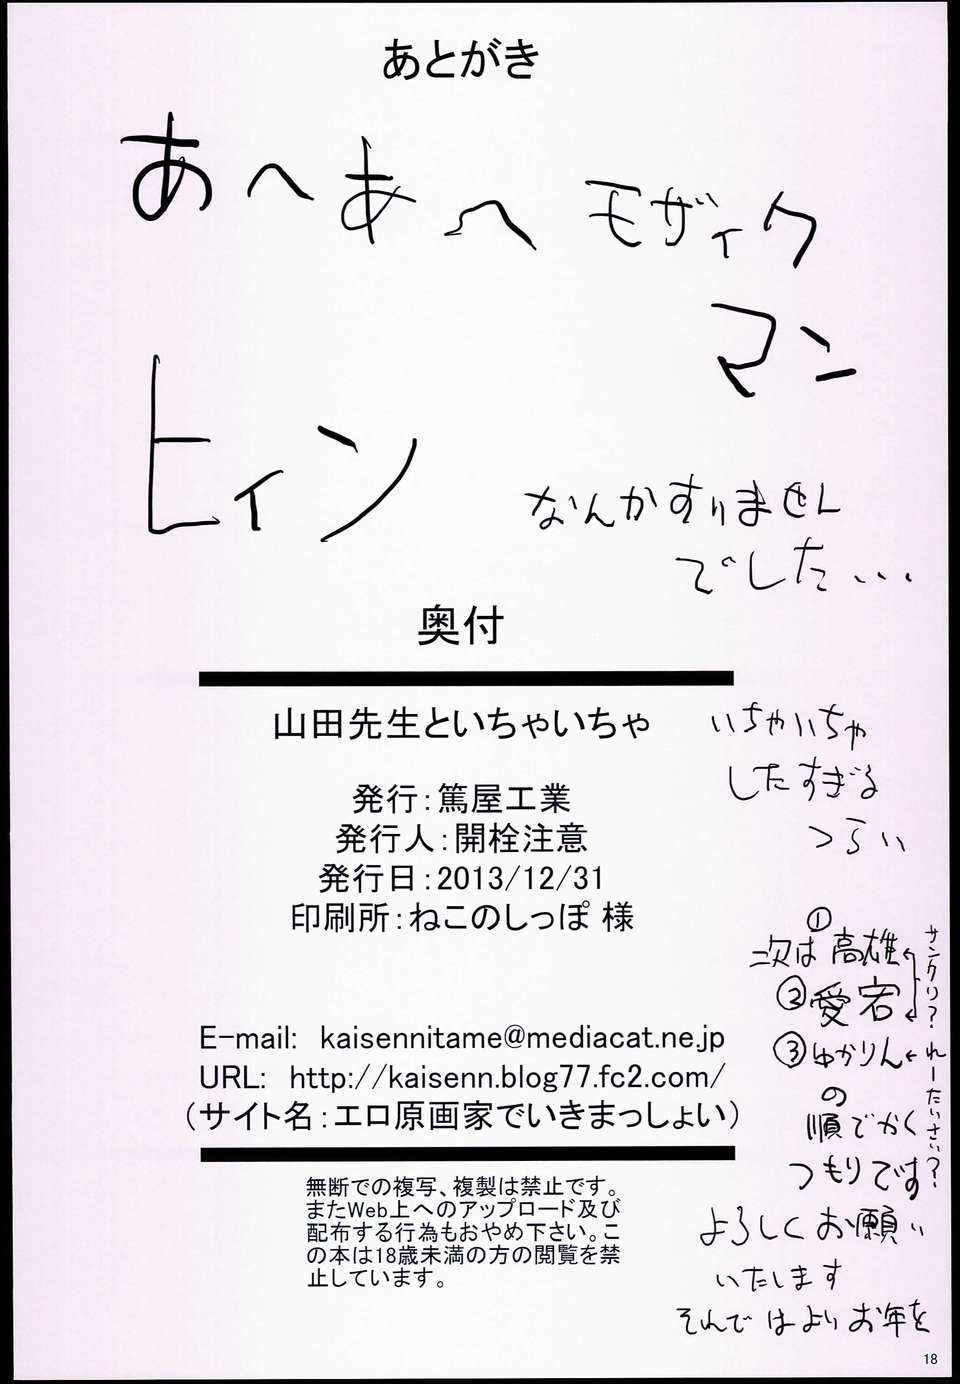 あとがき
あへあへ モザイク
マン
ヒィン
なんかすいません
でした...
奥付
山田先生といちゃいちゃ
発行：篤屋工業
発行人：開栓注意
発行日：2013/12/31
印刷所：ねこのしっぽ 様
E-mail: kaisennitame@mediacat.ne.jp
URL: http://kaisenn.blog77.fc2.com/
（サイト名：エロ原画家でいきまっしょい）
無断での複写、複製は禁止です。
またWeb上へのアップロード及び
配布する行為もおやめ下さい。こ
の本は18歳未満の方の閲覧を禁
止しています。
いちゃいちゃ
したすぎる
つらい
次は①高雄
②愛宕
サンクリ?
③ゆかりん
れーたいさい?
の
順でかく
つもりです
よろしくお願い
いたします
それではよいお年を
18